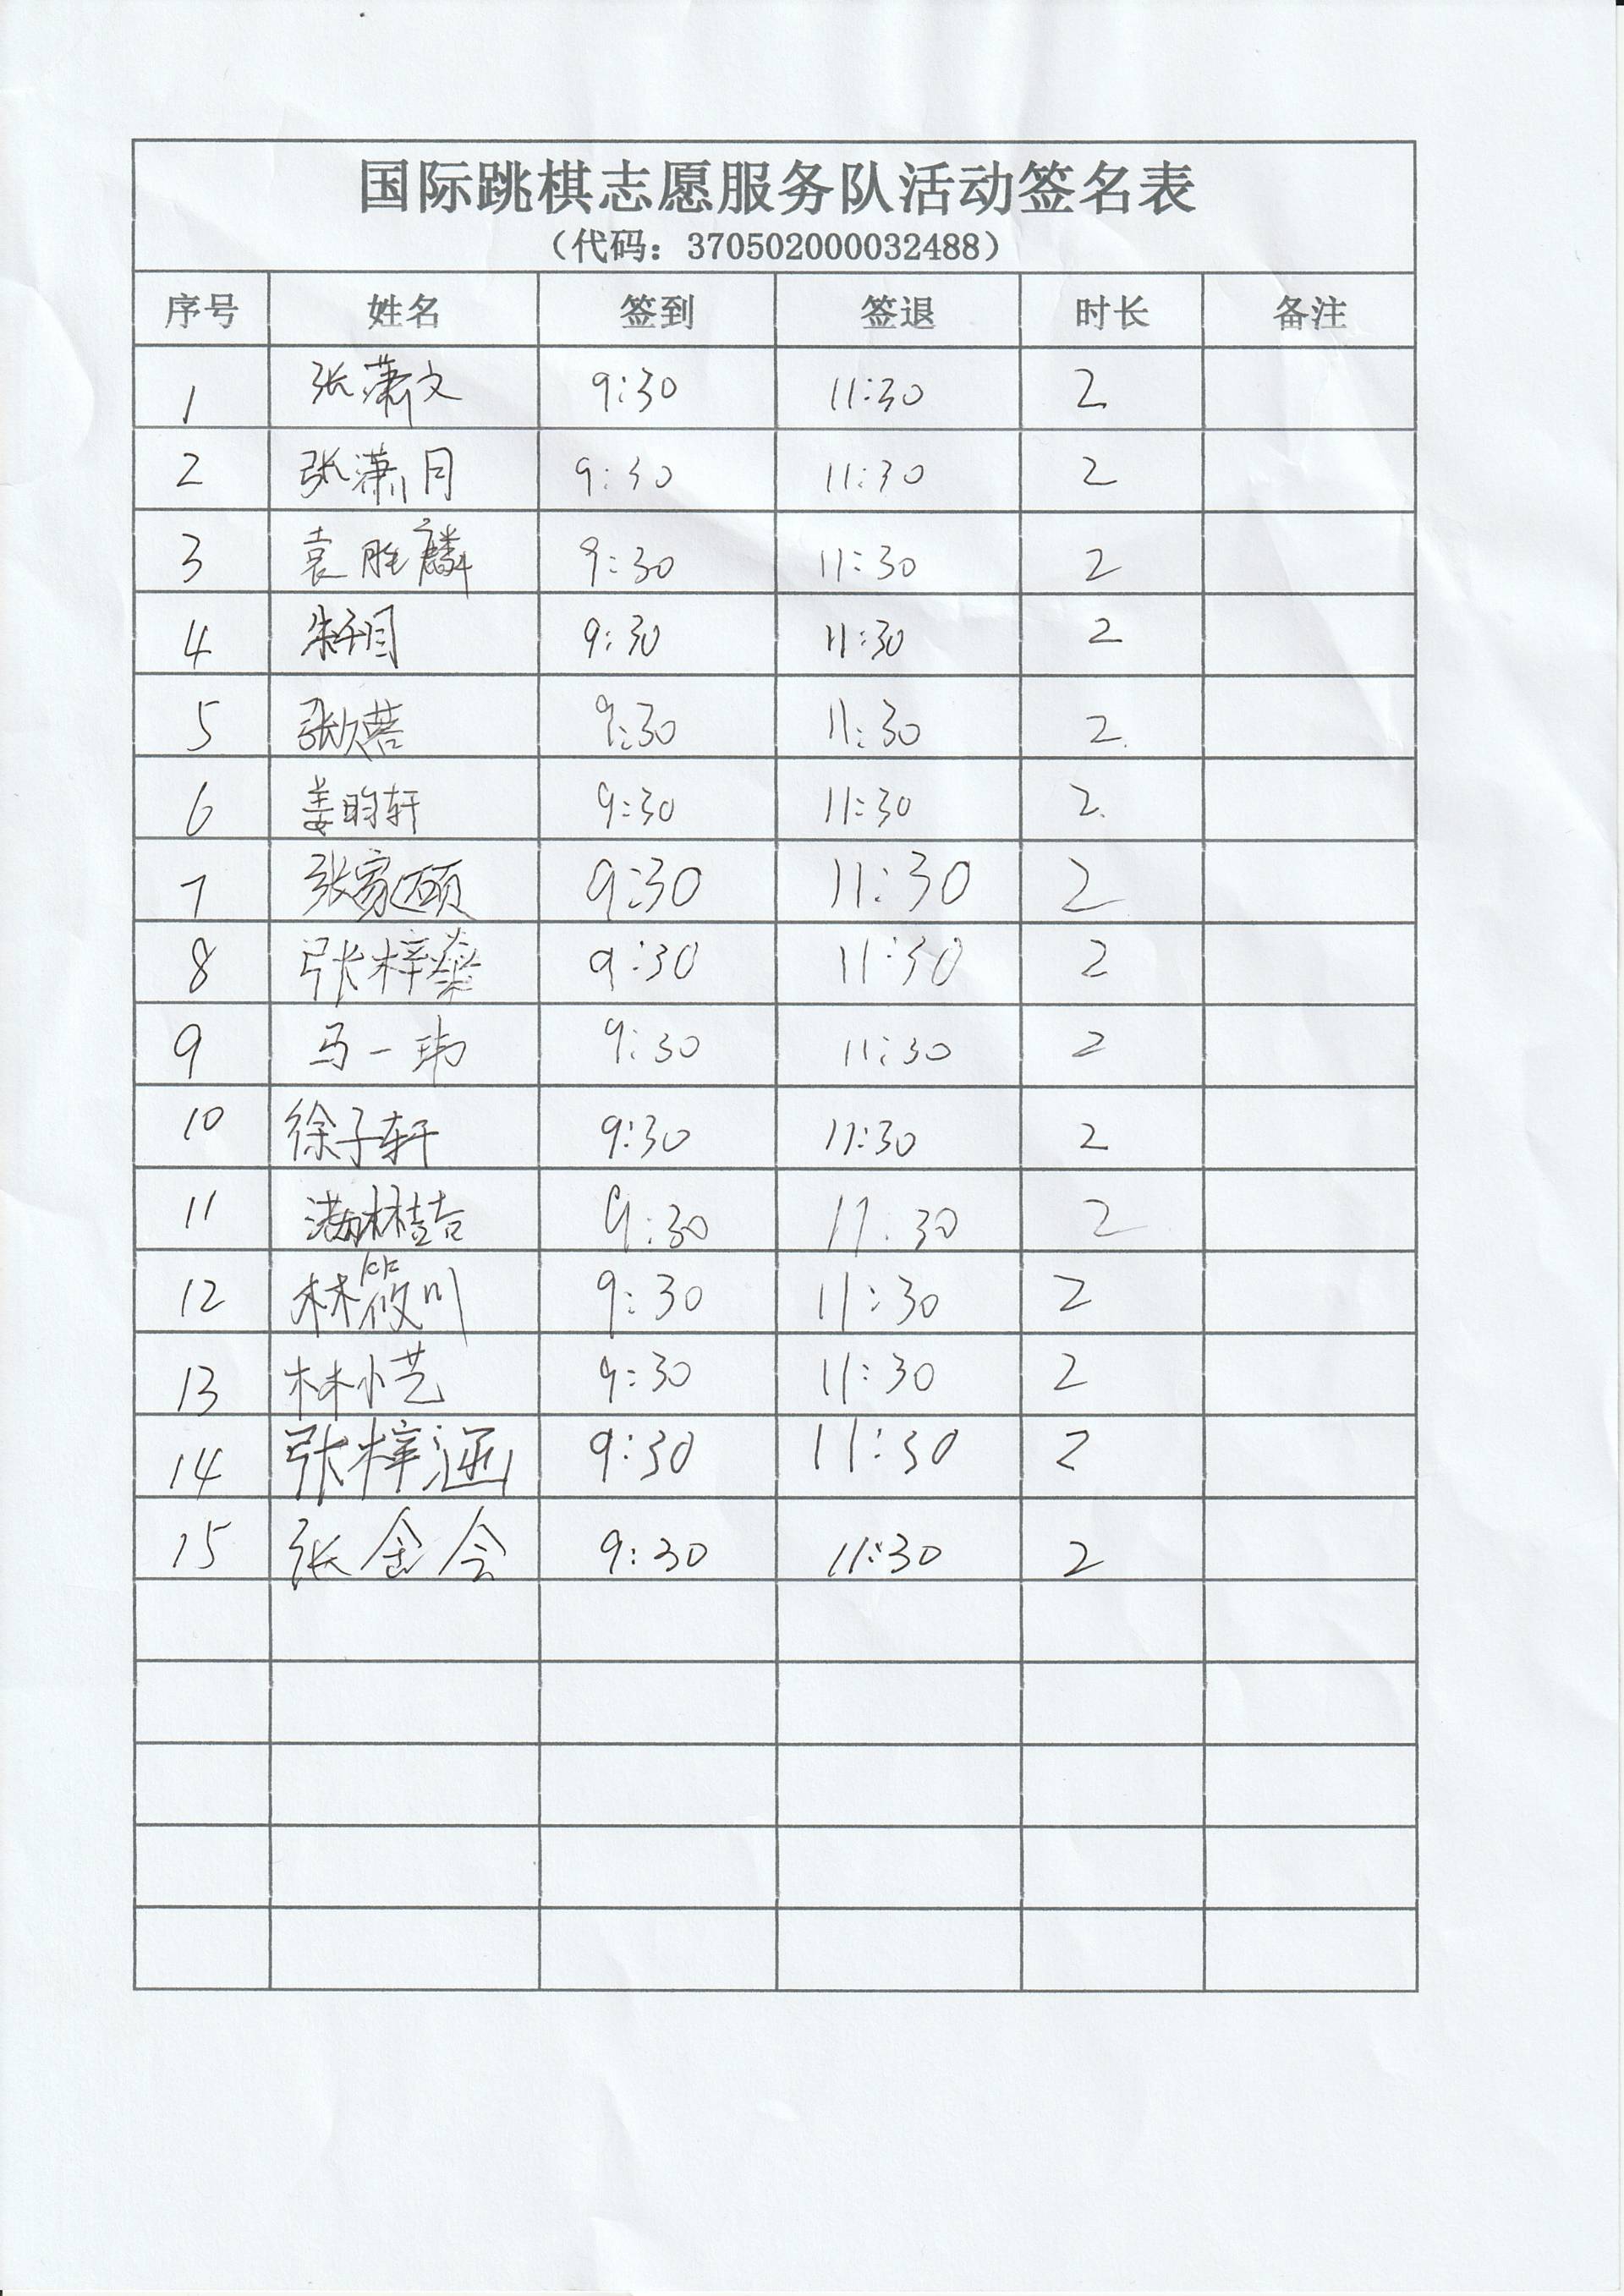 国际跳棋志愿服务队活动签名表
（代码：370502000032488）
序号 姓名 签到 签退 时长 备注
1 张潇文 9:30 11:30 2
2 张潇月 9:30 11:30 2
3 袁胜麟 9:30 11:30 2
4 9:30 11:30 2
5 9:30 11:30 2
6 姜昀轩 9:30 11:30 2
7 张家硕 9:30 11:30 2
8 张梓燊 9:30 11:30 2
9 马一玮 9:30 11:30 2
10 徐子轩 9:30 11:30 2
11 满林喆 9:30 11:30 2
12 林筱川 9:30 11:30 2
13 林小艺 9:30 11:30 2
14 张梓涵 9:30 11:30 2
15 张金会 9:30 11:30 2